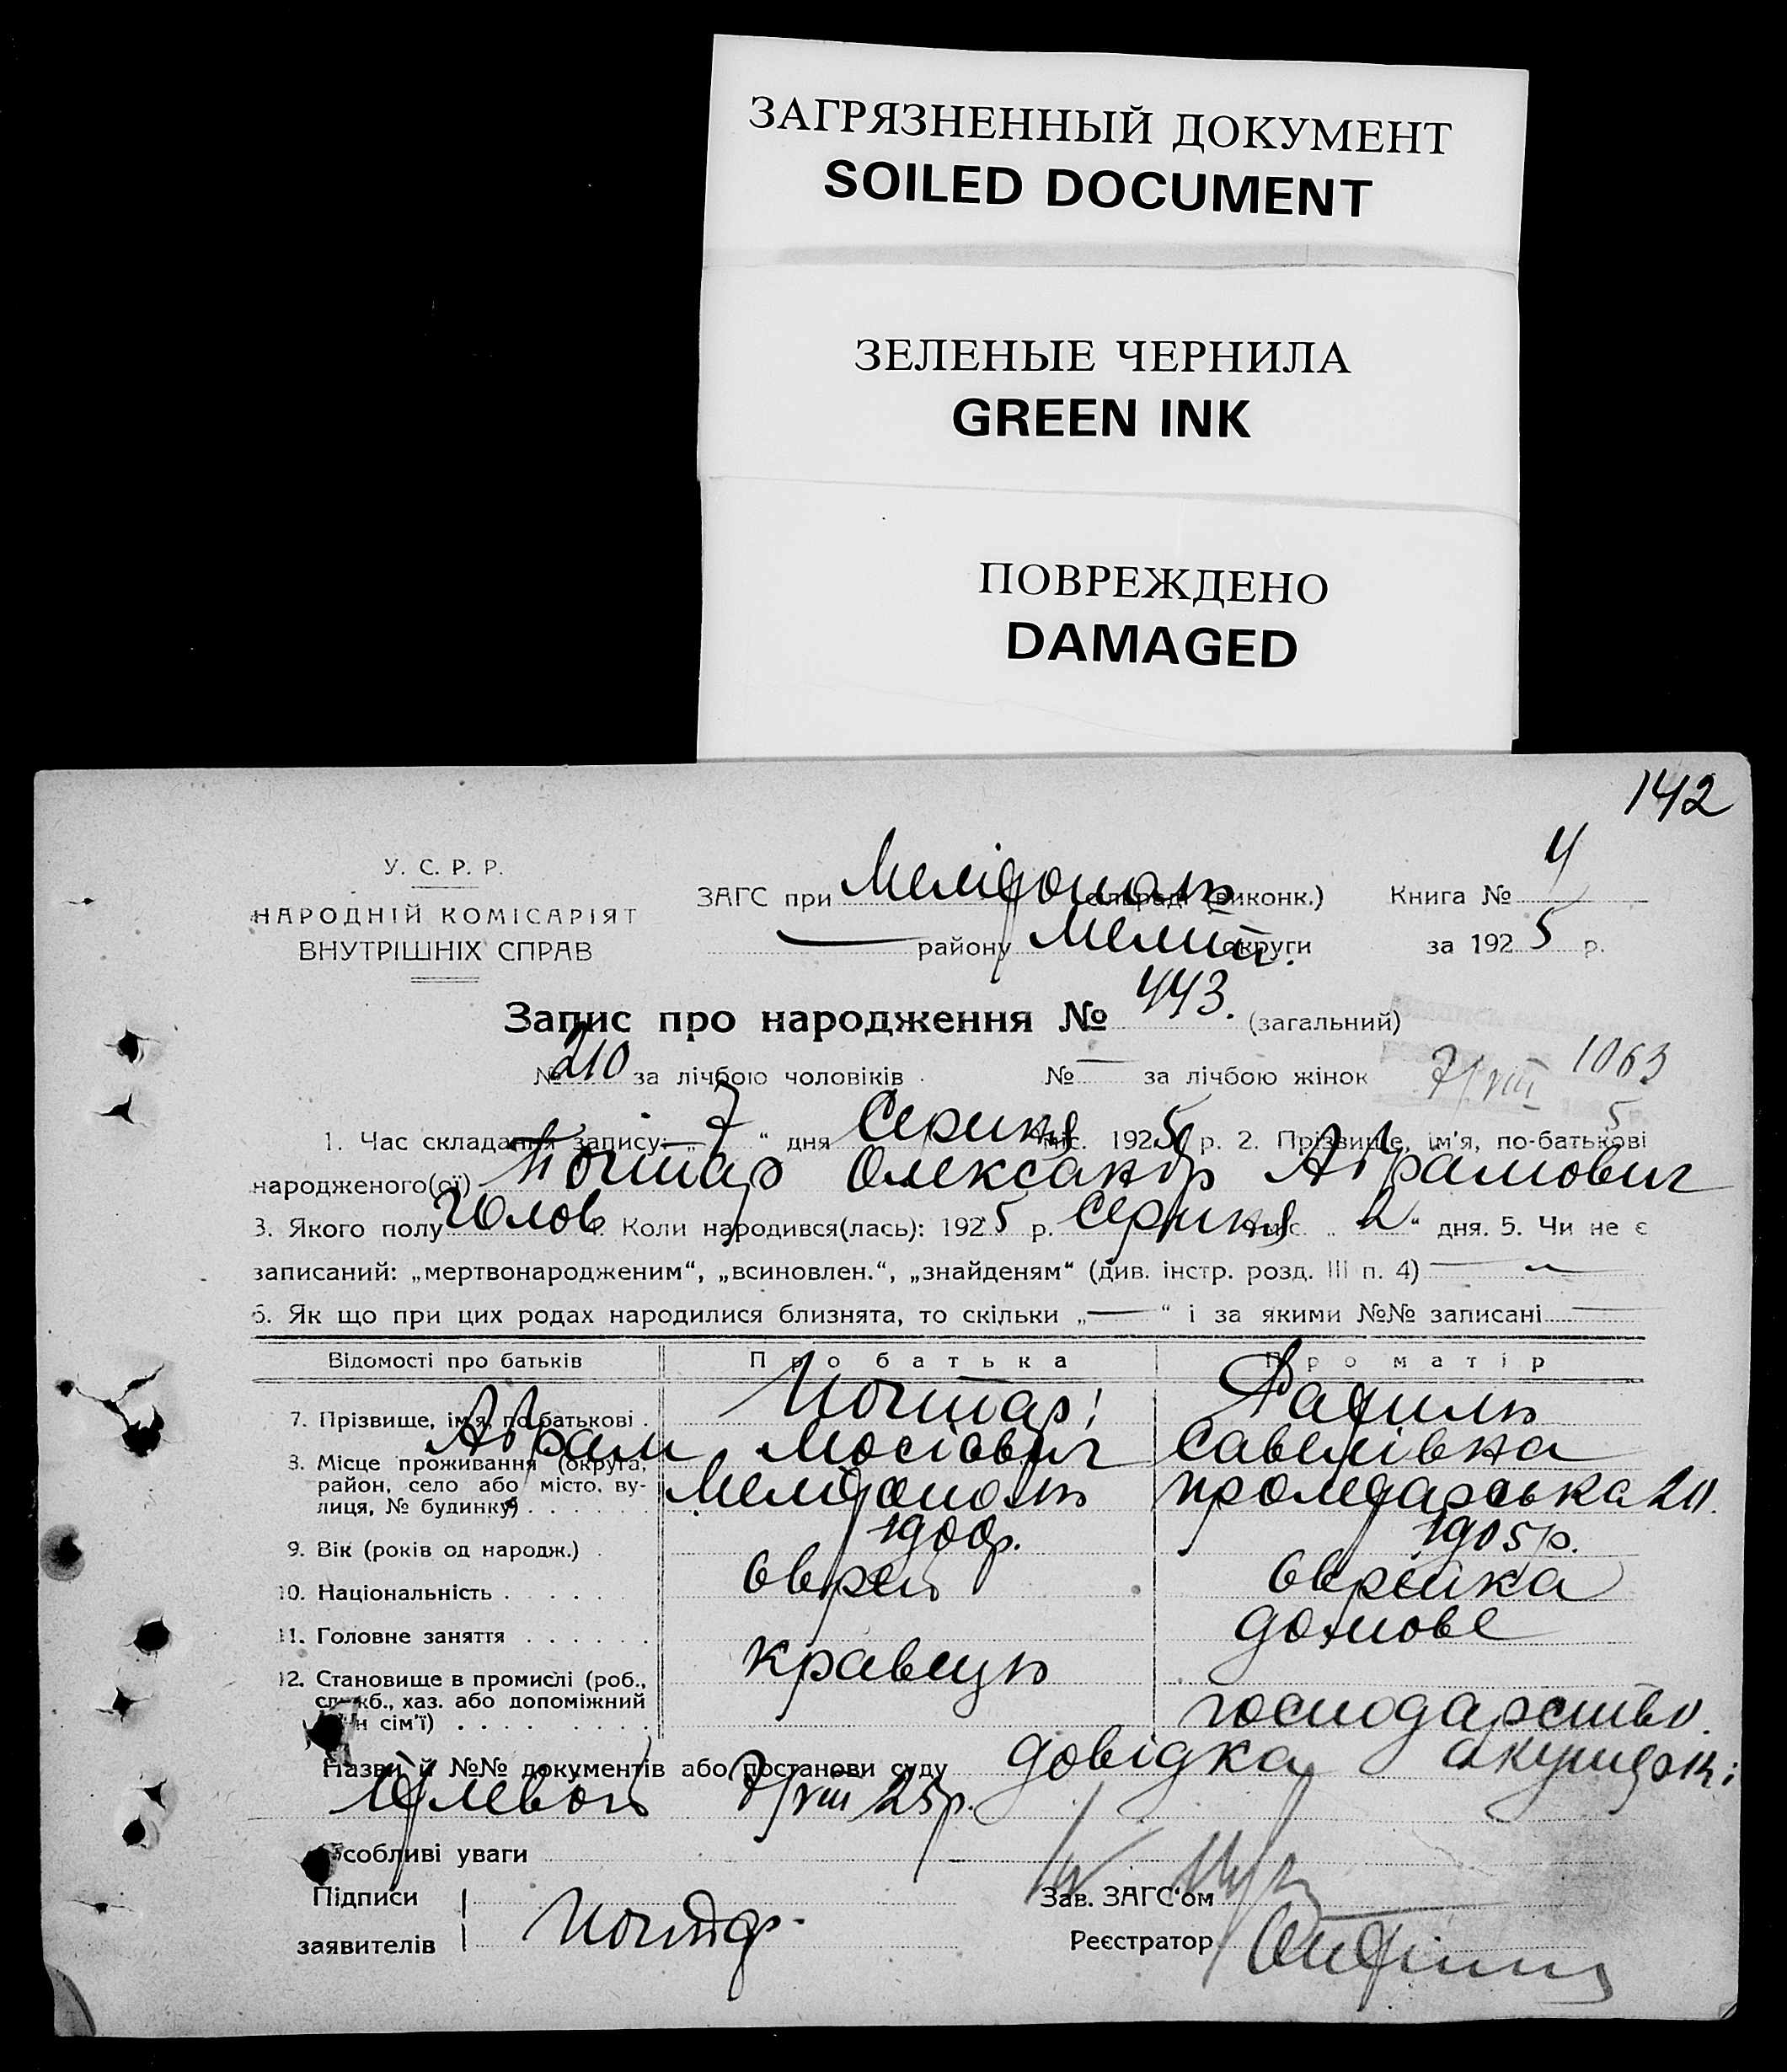 ЗАГРЯЗНЕННЫЙ ДОКУМЕНТ
SOILED DOCUMENT
ЗЕЛЕНЫЕ ЧЕРНИЛА
GREEN INK
ПОВРЕЖДЕНО
DAMAGED
142
У. С. Р. Р.
НАРОДНІЙ КОМІСАРІЯТ
ВНУТРІШНІХ СПРАВ
ЗАГС при Мелітополь (виконк.) Книга № 4
— району Меліт. округи за 1925 р.
Запис про народження № 443. (загальний)
№ 210 за лічбою чоловіків № — за лічбою жінок 7/VIII 1063
5
1. Час складання запису: „ 7 “ дня Серпня міс. 1925 р. 2. Прізвище, ім'я, по-батькові
народженого(ої) Почтар Олександр Абрамович
3. Якого полу Чолов 4. Коли народився(лась): 1925 р. Серпня міс. „ 2 “ дня. 5. Чи не є
записаний: „мертвонародженим“, „всиновлен.“, „знайденям“ (див. інстр. розд. III п. 4) —
6. Як що при цих родах народилися близнята, то скільки „—“ і за якими №№ записані —
Відомості про батьків Про батька Про матір
7. Прізвище, ім'я, по-батькові . Почтарі Рахиль
Абрам Мосіович Савеліївна
8. Місце проживання (округа,
район, село або місто, ву-
лиця, № будинку) . . . . . Мелітополь Пролетарська 20.
9. Вік (років од народж.) . 1900р. 1905р.
10. Національність . . . . . . єврей єврейка
11. Головне заняття . . . . . . домове
12. Становище в промислі (роб., кравець
служб., хаз. або допоміжний
член сім'ї) . . . . . . . . господарство.
Назви й №№ документів або постанови суду довідка акушерки
7/VIII 25р.
Особливі уваги
Підписи
заявителів Почтар.
Зав. ЗАГС'ом
Реєстратор